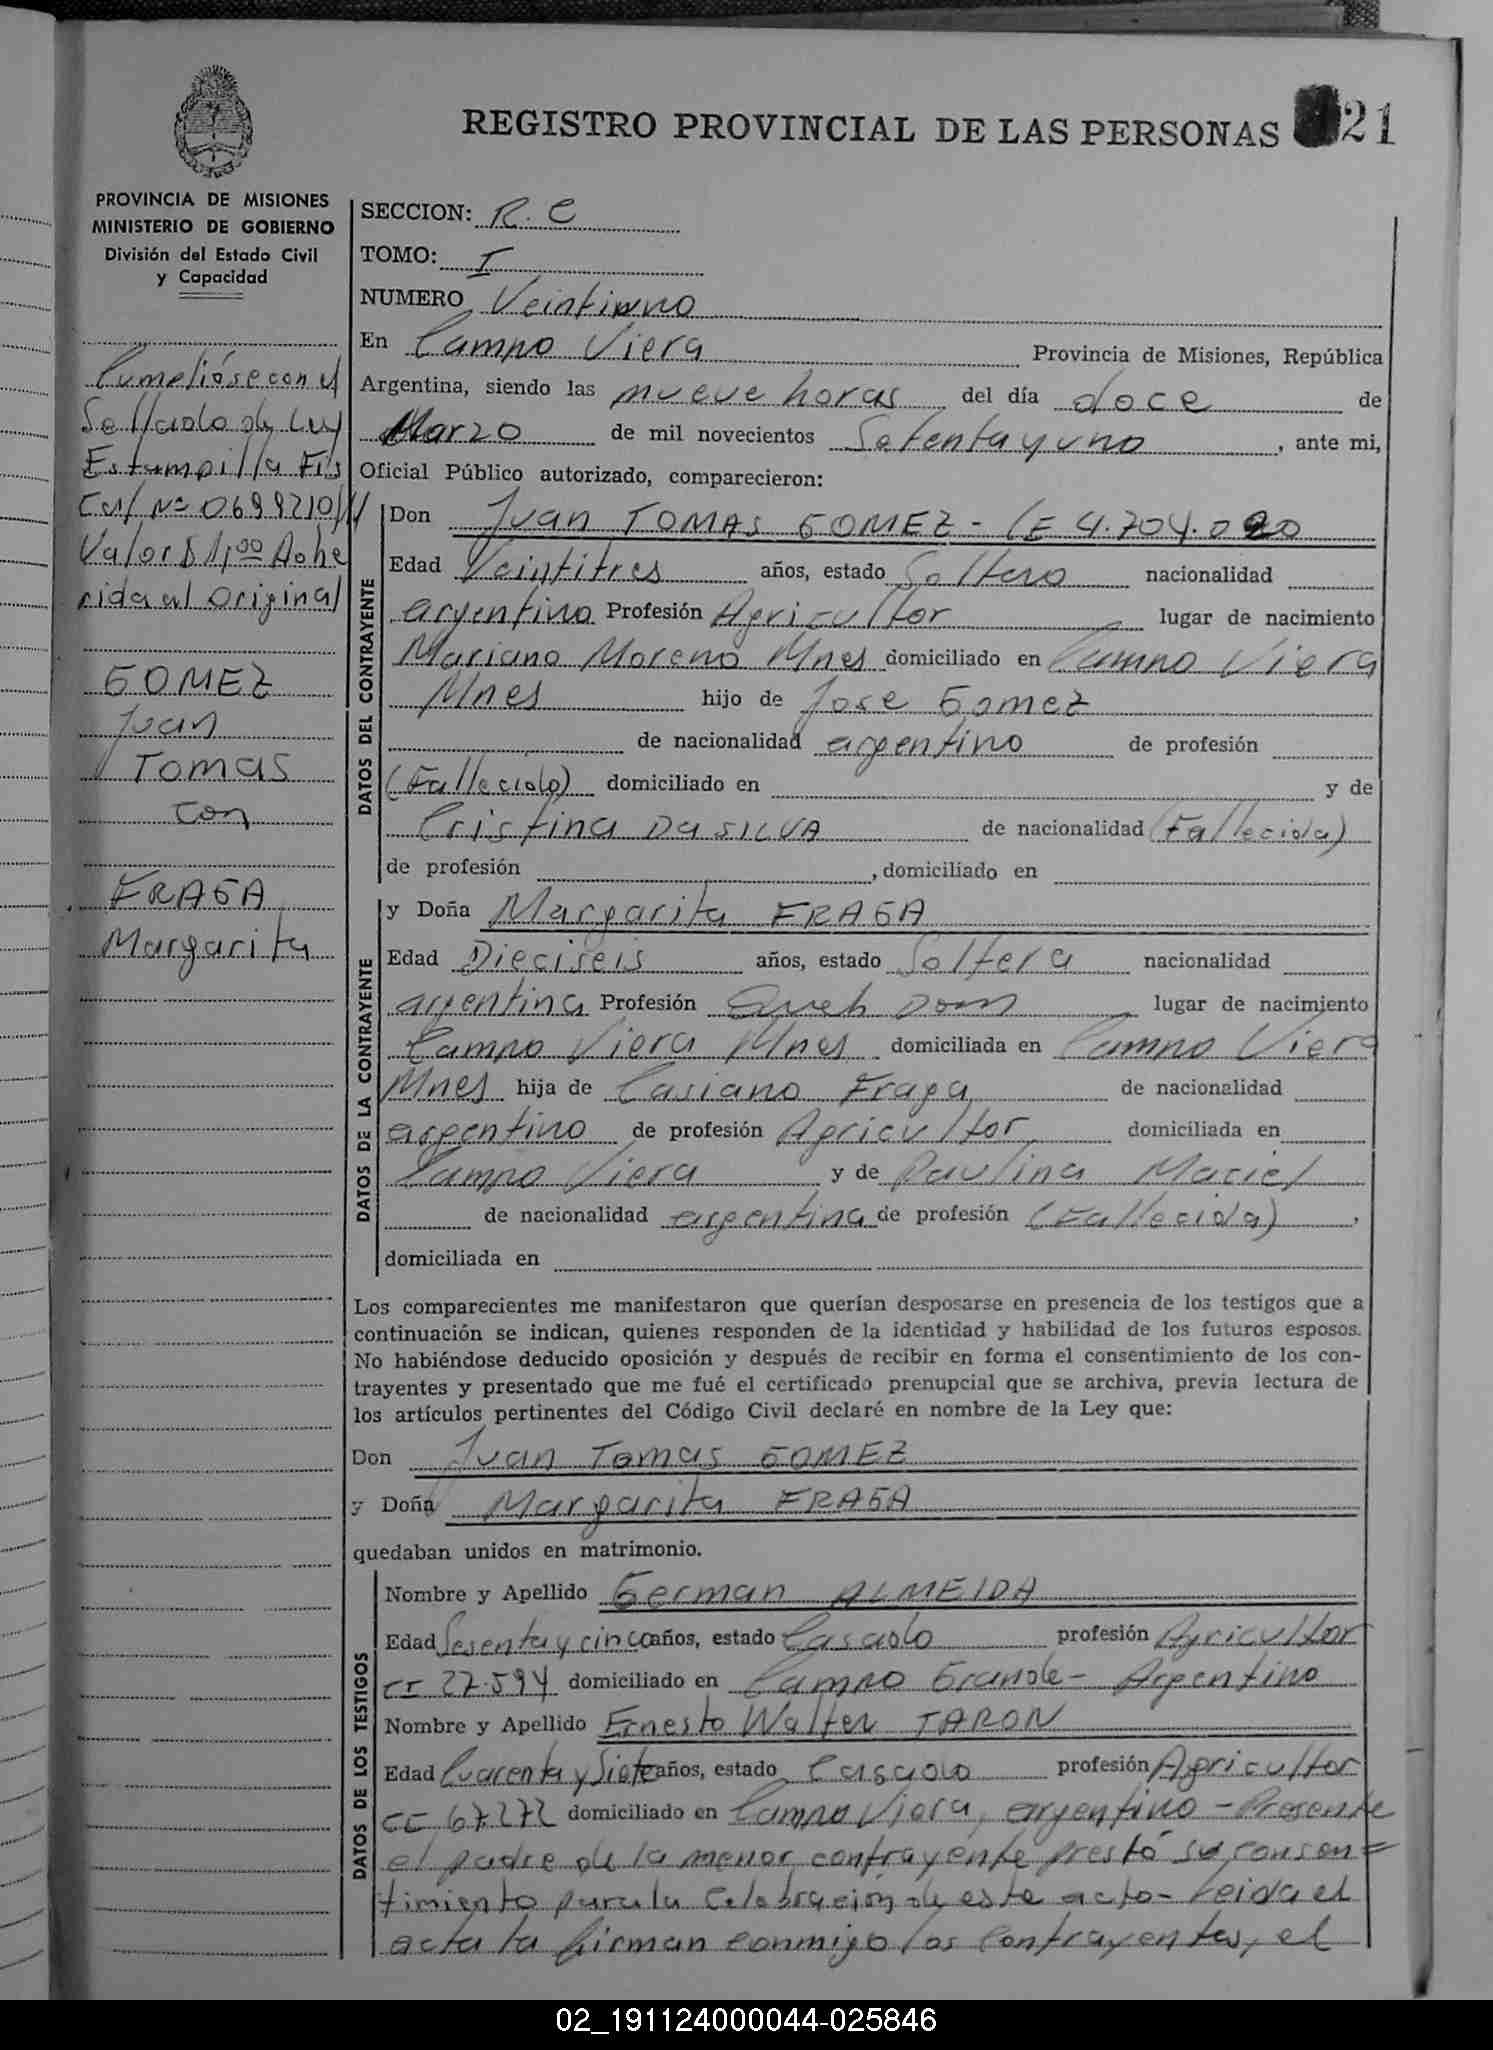 REGISTRO PROVINCIAL DE LAS PERSONAS 21
PROVINCIA DE MISIONES
MINISTERIO DE GOBIERNO
División del Estado Civil
y Capacidad
Cumplióse con el
Sellado de Ley
Estampilla Fis
Cal Nº 0699210//
Valor $ 1,00 Adhe
rida al original
GOMEZ
Juan
Tomas
con
FRAGA
Margarita
SECCION: R. C
TOMO: I
NUMERO Veintiuno
En Campo Viera Provincia de Misiones, República
Argentina, siendo las nueve horas del día doce de
Marzo de mil novecientos Setenta y uno, ante mi,
Oficial Público autorizado, comparecieron:
DATOS DEL CONTRAYENTE
Don Juan TOMAS GOMEZ - LE 4.704.020
Edad Veintitres años, estado Soltero nacionalidad
argentino Profesión Agricultor lugar de nacimiento
Mariano Moreno Mnes domiciliado en Campo Viera
Mnes hijo de Jose Gomez
de nacionalidad argentino de profesión
(Fallecido) domiciliado en y de
Cristina DA SILVA de nacionalidad (Fallecida)
de profesión , domiciliado en
DATOS DE LA CONTRAYENTE
y Doña Margarita FRAGA
Edad Dieciseis años, estado Soltera nacionalidad
argentina Profesión lugar de nacimiento
Campo Viera Mnes domiciliada en Campo Viera
Mnes hija de Casiano Fraga de nacionalidad
argentino de profesión Agricultor domiciliada en
Campo Viera y de Paulina Maciel
de nacionalidad argentina de profesión (Fallecida),
domiciliada en
Los comparecientes me manifestaron que querían desposarse en presencia de los testigos que a
continuación se indican, quienes responden de la identidad y habilidad de los futuros esposos.
No habiéndose deducido oposición y después de recibir en forma el consentimiento de los con-
trayentes y presentado que me fué el certificado prenupcial que se archiva, previa lectura de
los artículos pertinentes del Código Civil declaré en nombre de la Ley que:
Don Juan Tomas GOMEZ
y Doña Margarita FRAGA
quedaban unidos en matrimonio.
DATOS DE LOS TESTIGOS
Nombre y Apellido German ALMEIDA
Edad Sesenta y cinco años, estado Casado profesión Agricultor
CI 27.594 domiciliado en Campo Grande - Argentino
Nombre y Apellido Ernesto Walter TARON
Edad Cuarenta y Siete años, estado Casado profesión Agricultor
67272 domiciliado en Campo Viera, argentino - Presente
el padre de la menor contrayente prestó su consen=
timiento para la Celebración de este acto - Leida el
acta la firman conmigo los Contrayentes, el
02_191124000044-025846